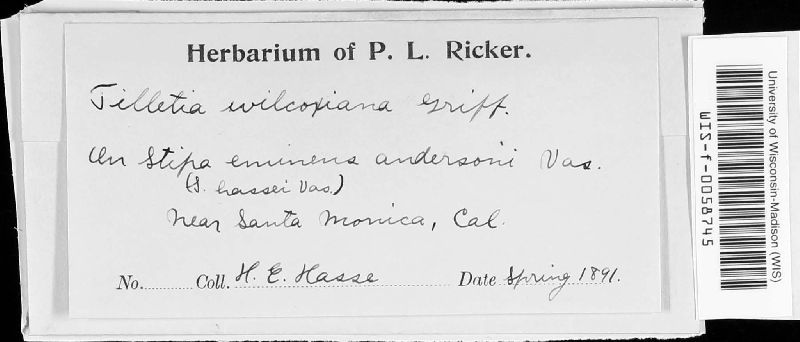 Herbarium of P. L. Ricker.
Tilletia wilcoxiana Griff.
On Stipa eminens andersoni Vas.
(S. hassei Vas.)
Near Santa Monica, Cal.
No. Coll. H. E. Hasse Date Spring 1891.
University of Wisconsin-Madison (WIS)
WIS-f-0058745